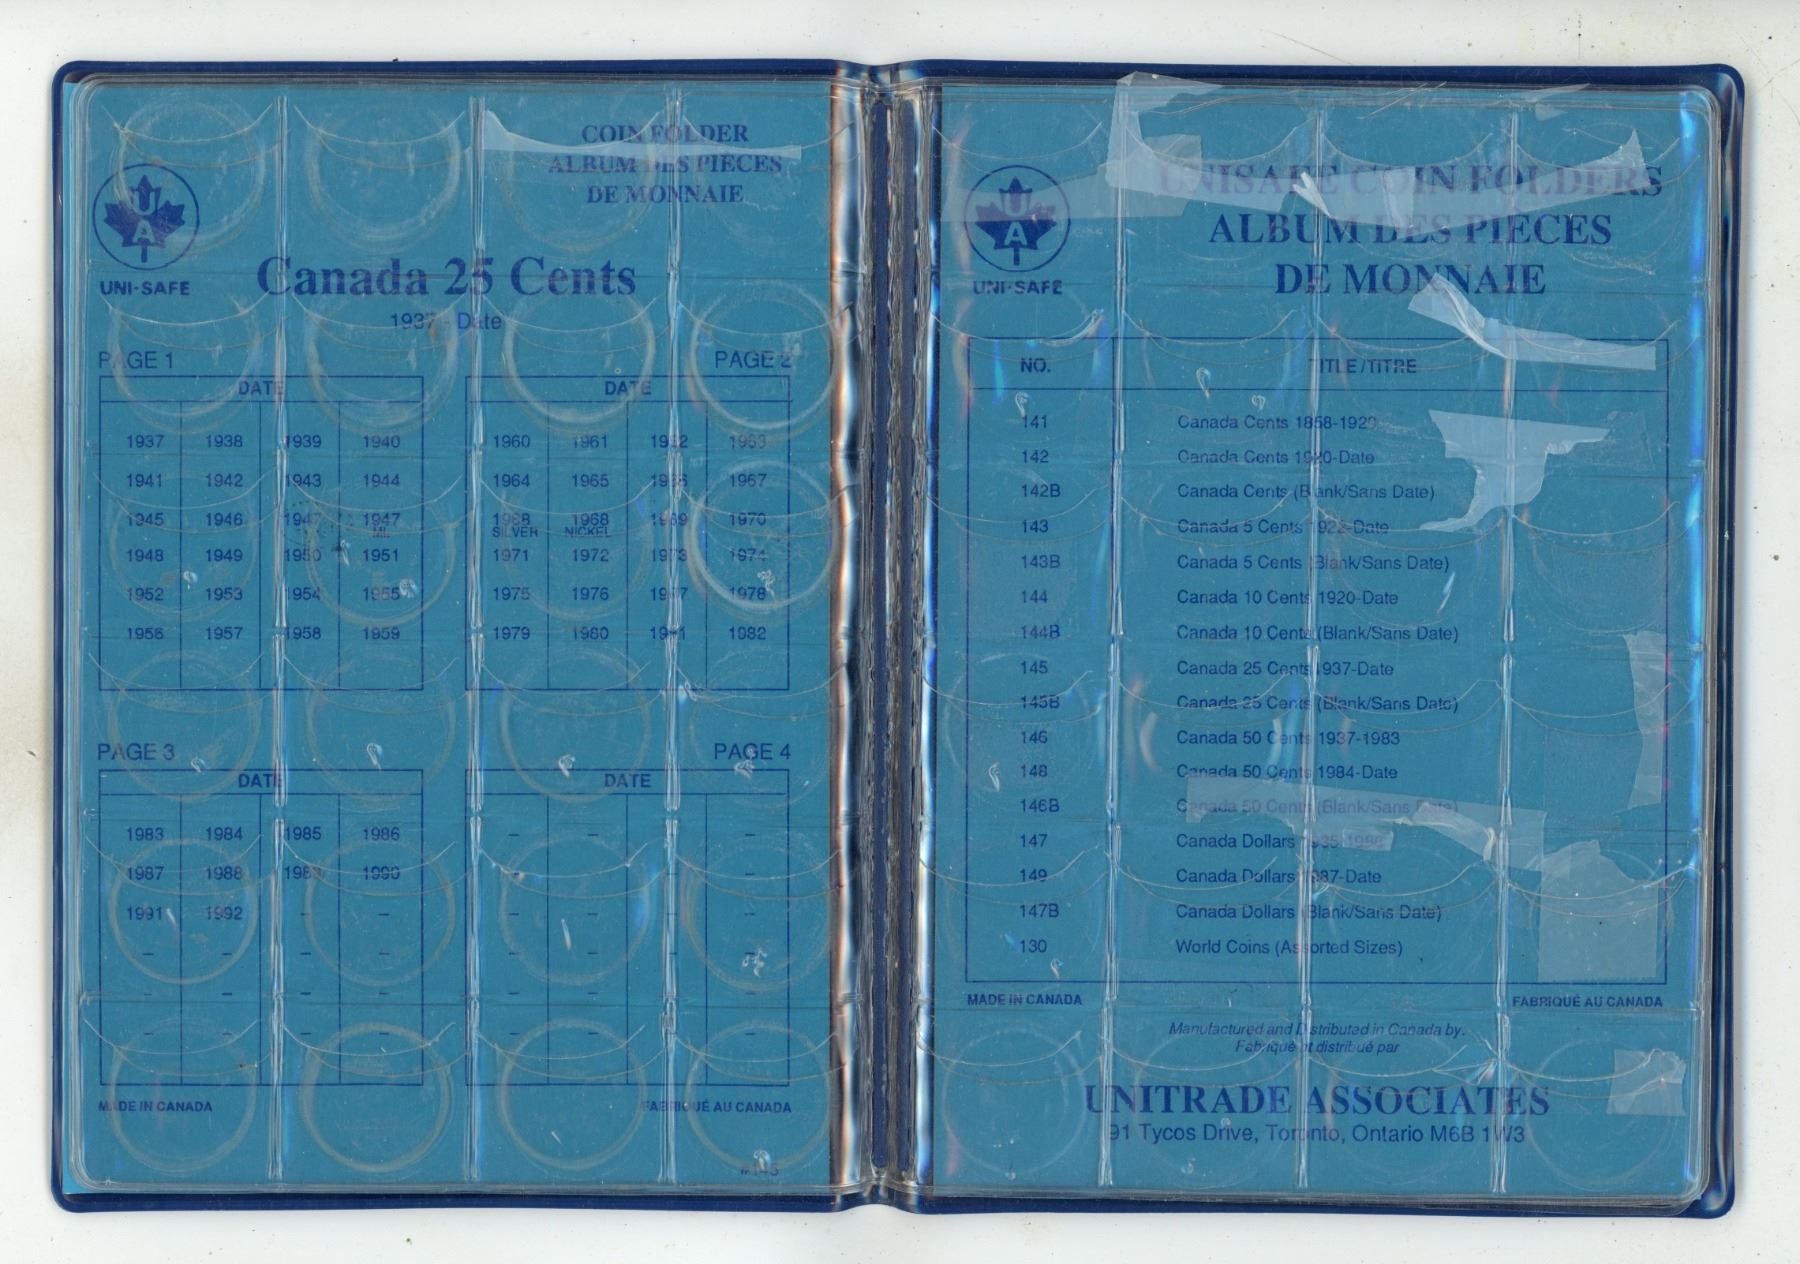 COIN FOLDER
ALBUM DES PIÈCES
DE MONNAIE
U
A
UNI-SAFE
Canada 25 Cents
1937 - Date
PAGE 1
DATE
1937 1938 1939 1940
1941 1942 1943 1944
1945 1946 1947 1947
ML
1948 1949 1950 1951
1952 1953 1954 1955
1956 1957 1958 1959
PAGE 2
DATE
1960 1961 1962 1963
1964 1965 1966 1967
1968 1968 1969 1970
SILVER NICKEL
1971 1972 1973 1974
1975 1976 1977 1978
1979 1980 1981 1982
PAGE 3
DATE
1983 1984 1985 1986
1987 1988 1989 1990
1991 1992 – –
– – – –
– – – –
– – – –
PAGE 4
DATE
– – – –
– – – –
– – – –
– – – –
– – – –
– – – –
MADE IN CANADA
FABRIQUÉ AU CANADA
#145
U
A
UNI-SAFE
UNISAFE COIN FOLDERS
ALBUM DES PIÈCES
DE MONNAIE
NO. TITLE/TITRE
141 Canada Cents 1858-1920
142 Canada Cents 1920-Date
142B Canada Cents (Blank/Sans Date)
143 Canada 5 Cents 1922-Date
143B Canada 5 Cents (Blank/Sans Date)
144 Canada 10 Cents 1920-Date
144B Canada 10 Cents (Blank/Sans Date)
145 Canada 25 Cents 1937-Date
145B Canada 25 Cents (Blank/Sans Date)
146 Canada 50 Cents 1937-1983
148 Canada 50 Cents 1984-Date
146B Canada 50 Cents (Blank/Sans Date)
147 Canada Dollars 1935-1986
149 Canada Dollars 1987-Date
147B Canada Dollars (Blank/Sans Date)
130 World Coins (Assorted Sizes)
MADE IN CANADA
FABRIQUÉ AU CANADA
Manufactured and Distributed in Canada by.
Fabriqué et distribué par
UNITRADE ASSOCIATES
91 Tycos Drive, Toronto, Ontario M6B 1W3